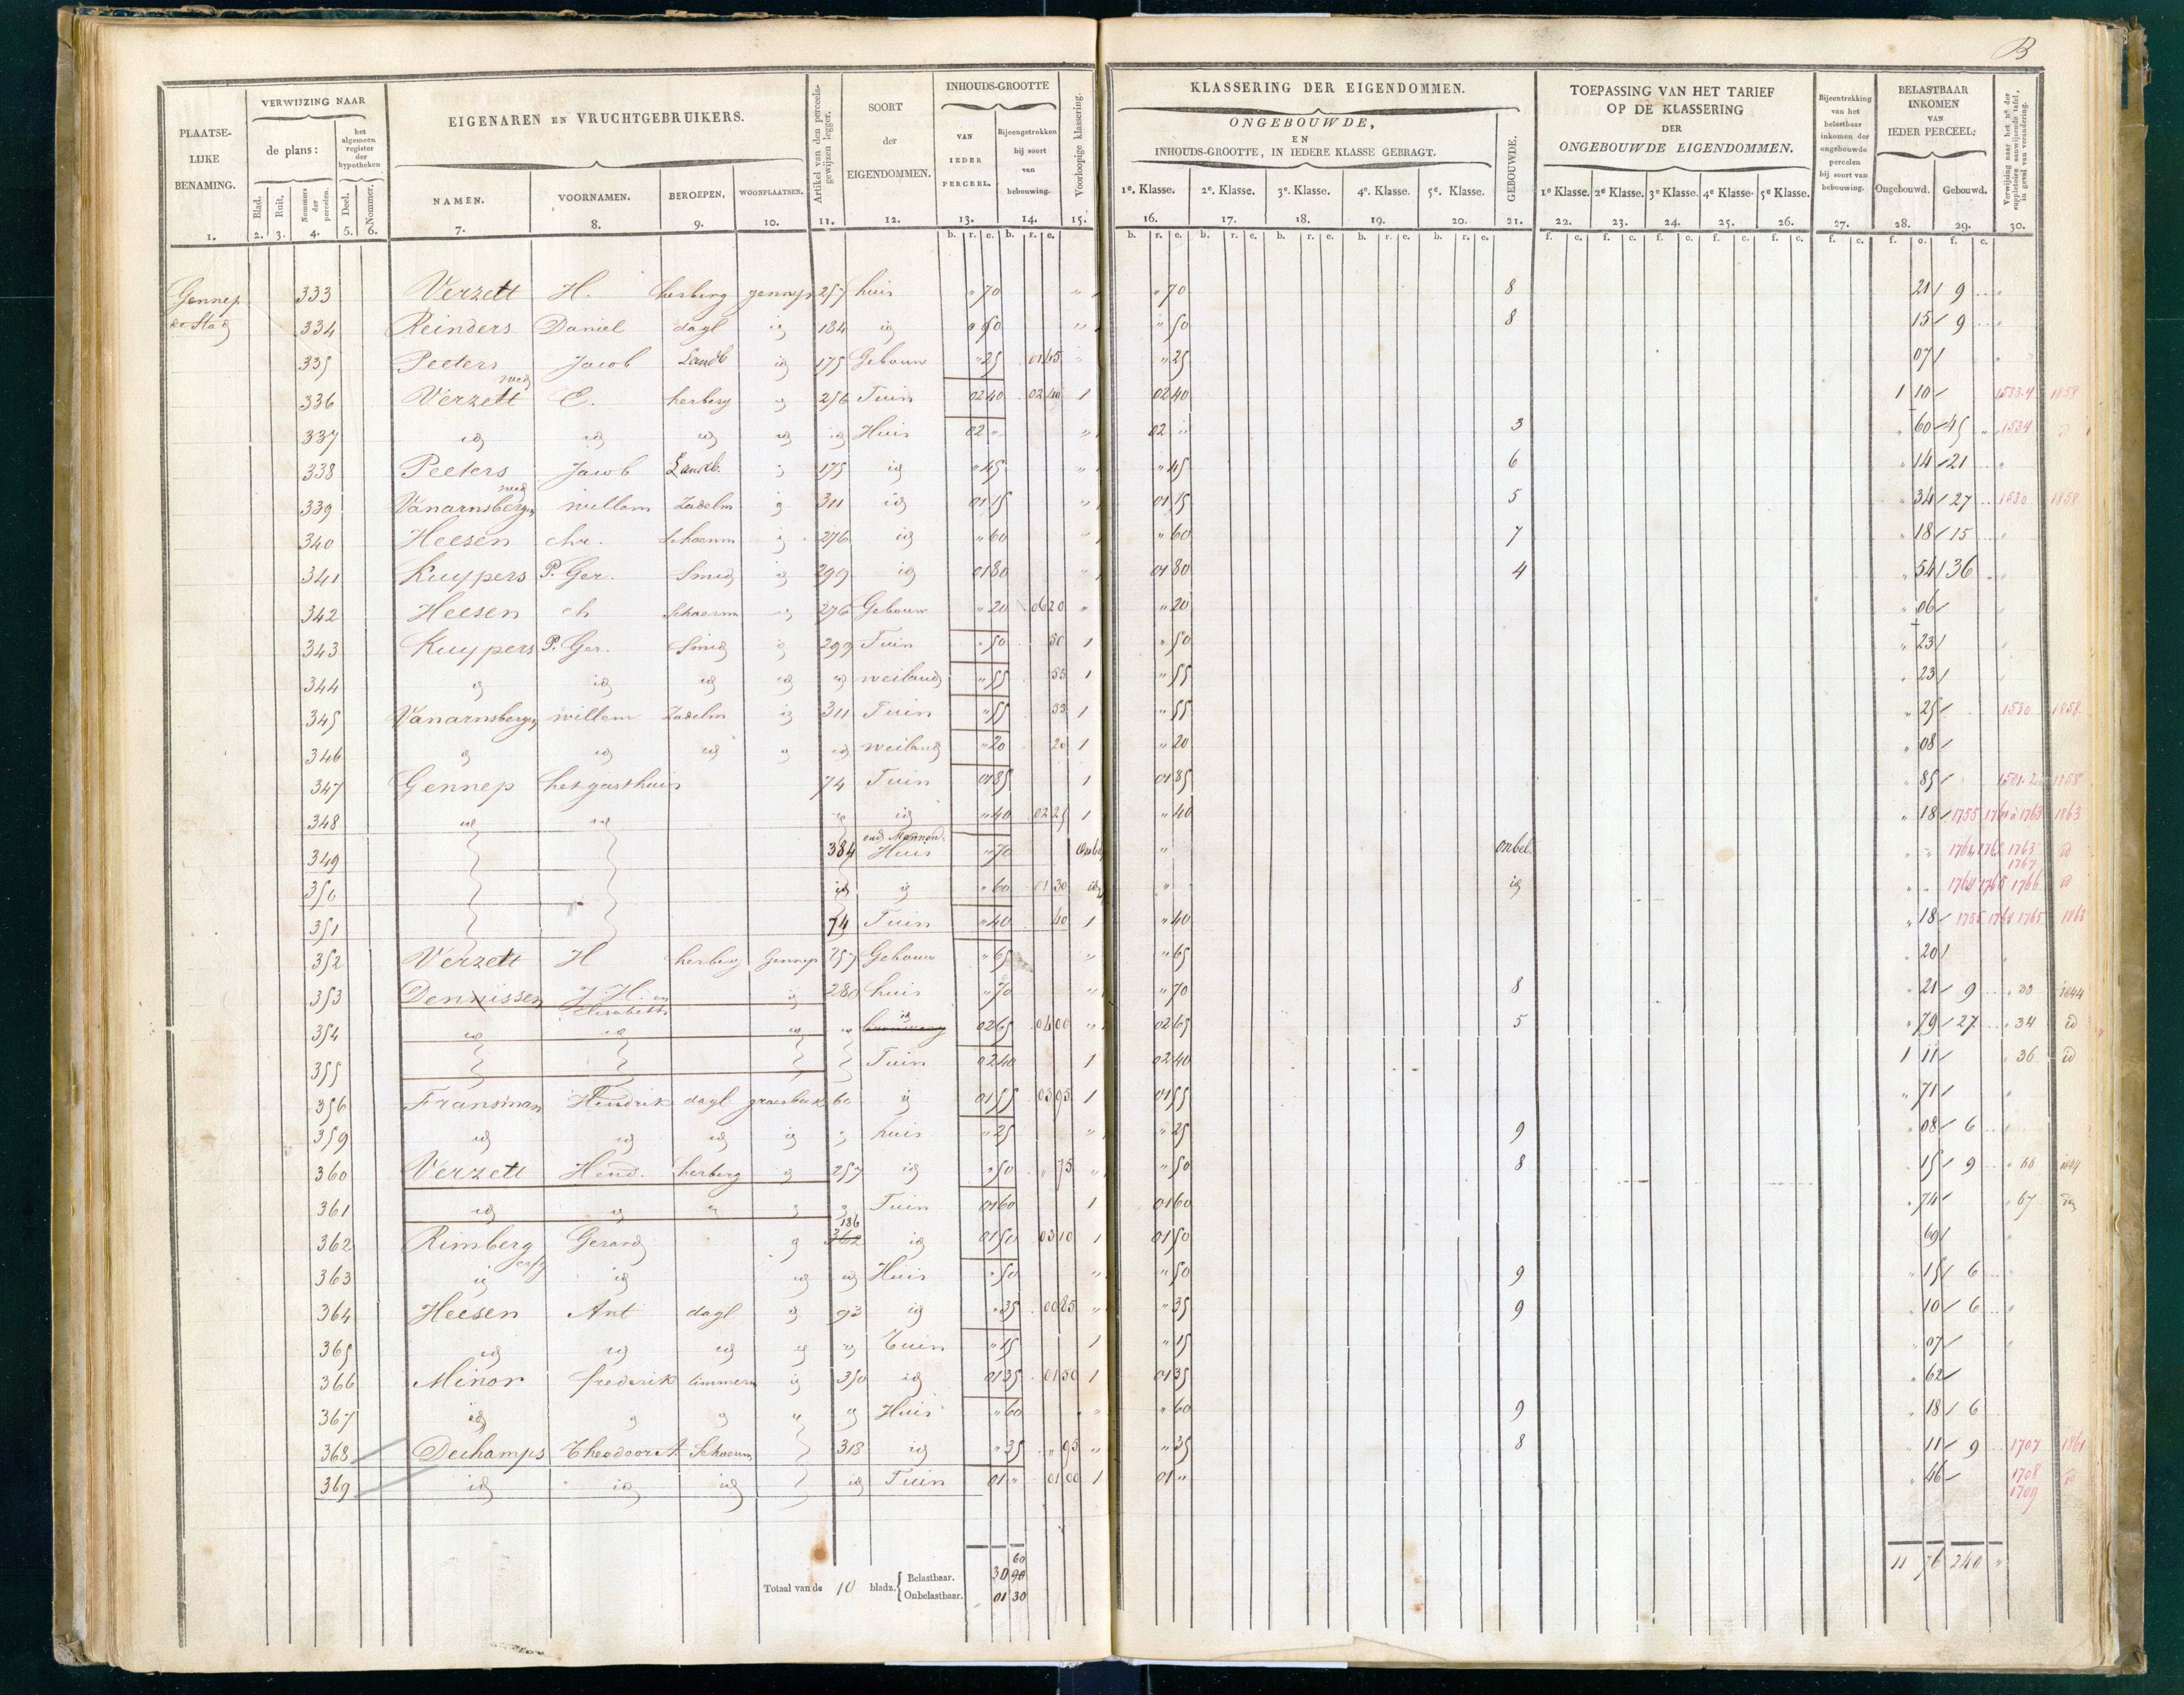 B
PLAATSELIJKE BENAMING. 1.
VERWIJZING NAAR
de plans:
Blad. 2. Ruit. 3. Nommers der percelen. 4.
het algemeen register der hypotheken
Deel. 5. Nommer. 6.
EIGENAREN EN VRUCHTGEBRUIKERS.
NAMEN. 7. VOORNAMEN. 8. BEROEPEN. 9. WOONPLAATSEN. 10.
Artikel van den perceelsgewijzen legger. 11.
SOORT der EIGENDOMMEN. 12.
INHOUDS-GROOTTE
VAN IEDER PERCEEL. 13. Bijeengetrokken bij soort van bebouwing. 14.
Voorloopige klassering. 15.
KLASSERING DER EIGENDOMMEN.
ONGEBOUWDE, EN INHOUDS-GROOTTE, IN IEDERE KLASSE GEBRAGT.
1e. Klasse. 16. 2e. Klasse. 17. 3e. Klasse. 18. 4e. Klasse. 19. 5e. Klasse. 20.
GEBOUWDE. 21.
TOEPASSING VAN HET TARIEF OP DE KLASSERING DER ONGEBOUWDE EIGENDOMMEN.
1e Klasse. 22. 2e Klasse. 23. 3e Klasse. 24. 4e Klasse. 25. 5e Klasse. 26.
Bijeentrekking van het belastbaar inkomen der ongebouwde percelen bij soort van bebouwing. 27.
BELASTBAAR INKOMEN VAN IEDER PERCEEL:
Ongebouwd. 28. Gebouwd. 29.
Verwijzing naar het no der suppletoire aanwijzende tafel, in geval van verandering. 30.
Gennep 333 Verzett H. herberg gennep 257 huis " 70 " " 70 8 21 9
de Stad 334 Reinders Daniel dagl id 184 id " 50 " " 50 8 15 9
335 Peeters Jacob Landb id 175 Gebouw " 25 01 45 " " 25 07
336 Verzett wed E. herberg id 256 Tuin 02 40 02 40 1 02 40 1 10 1533.4 1858
337 id id id id id Huis 02 " " 02 " 3 " 60 45 1534 id
338 Peeters Jacob Landb. id 175 id " 45 " " 45 6 " 14 21
339 Vanarnsbergen wed willem Zadelm id 311 id 01 15 " 01 15 5 " 34 27 1530 1858
340 Heesen chr. Schoenm id 276 id " 60 " " 60 7 " 18 15
341 Kuypers P. Ger. Smid id 299 id 01 80 " 01 80 4 " 54 36
342 Heesen ch Schoenm id 276 Gebouw " 20 06 20 " " 20 " 06
343 Kuypers P. Ger. Smid id 299 Tuin " 50 50 1 " 50 " 23
344 id id id id id weiland " 55 55 1 " 55 " 23
345 Vanarnsbergen willem Zadelm id 311 Tuin " 55 55 1 " 55 " 25 1530 1858
346 id id id id id weiland " 20 20 1 " 20 " 08
347 Gennep het gasthuis 74 Tuin 01 85 1 01 85 " 85 1501.2 1858
348 id id " id " 40 02 25 1 " 40 " 18 1755 1761 à 1763 1863
349 384 oud Mannen Huis " 70 onbel " onbel. " " 1761 1762 1763 1767 id
350 id id " 60 01 30 id " id " " 1764 1765 1766 id
351 74 Tuin " 40 40 1 " 40 " 18 1755 1764 1765 1863
352 Verzett H herberg Gennep 257 Gebouw " 65 " " 65 " 20
353 Dennissen J. H. en Elisabeth id 280 huis " 70 " " 70 8 " 21 9 " 33 1844
354 id id id id id 02 65 04 00 " 02 65 5 " 79 27 " 34 id
355 Tuin 02 40 1 02 40 1 11 " 36 id
356 Fransman Hendrik dagl groesbeek 60 id 01 55 03 95 1 01 55 " 71
359 id id id id id huis " 25 " " 25 9 " 08 6
360 Verzett Hend. herberg id 257 id " 50 " 75 " " 50 8 " 15 9 " 66 1844
361 id id " id id Tuin 01 60 1 01 60 " 74 " 67 id
362 Rimberg Gerard id 186 362 id 01 50 03 10 1 01 50 69
363 id erfg id id id Huis " 50 " " 50 9 " 15 6
364 Heesen Ant dagl id 93 id " 35 00 85 " " 35 9 " 10 6
365 id id id id id Tuin " 15 1 " 15 " 07
366 Minor frederik timmerm id 350 id 01 35 01 50 1 01 35 " 62
367 id id id id id Huis " 60 " " 60 9 " 18 6
368 Dechamps Theodoor A. Schoenm 318 id " 35 " 95 " " 35 8 " 11 9 1707 1861
369 id id id id Tuin 01 " 01 00 1 01 " " 46 1708 1709 id
Totaal van de 10 bladz. Belastbaar. 30 90 60
Onbelastbaar. 01 30
11 76 240 "